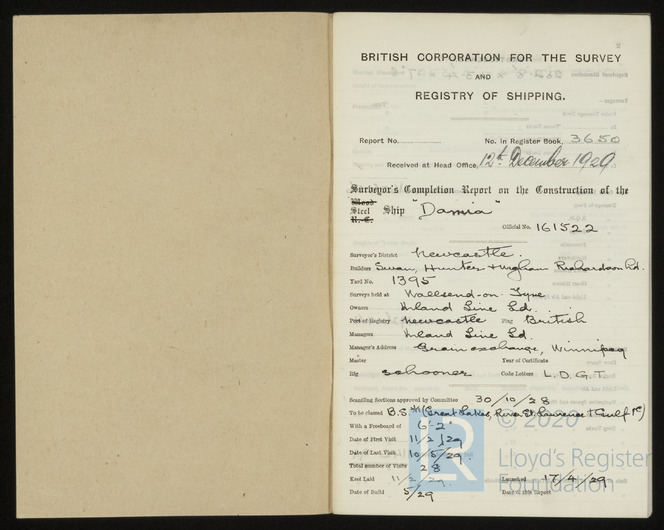 BRITISH CORPORATION FOR THE SURVEY
AND
REGISTRY OF SHIPPING.
Report No. No. in Register Book, 3650
Received at Head Office, 12th December 1929
Surveyor's Completion Report on the Construction of the
Wood
Steel Ship "Damia"
R.C.
Official No. 161522
Surveyor's District Newcastle.
Builders Swan, Hunter & Wigham Richardson Ld.
Yard No. 1395
Surveys held at Wallsend-on-Tyne
Owners Inland Line Ld.
Port of Registry Newcastle Flag British
Managers Inland Line Ld.
Manager's Address Grain exchange, Winnipeg
Master Year of Certificate
Rig Schooner Code Letters L.D.G.T.
Scantling Sections approved by Committee 30/10/28
To be classed B.S.* (Great Lakes, River St. Lawrence & Gulf)
With a Freeboard of 6'-2"
Date of First Visit 11/2/29
Date of Last Visit 10/5/29.
Total number of Visits 28
Keel Laid 11/2/29 Launched 17/4/29
Date of Build 5/29 Date of this Report
© 2020
Lloyd's Register
Foundation